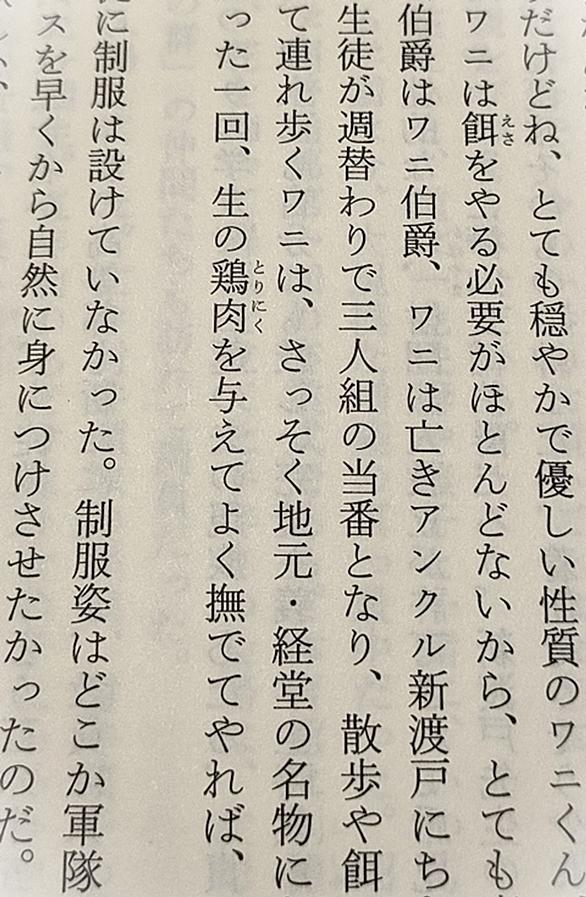 だけどね、とても穏やかで優しい性質のワニくん
ワニは餌をやる必要がほとんどないから、とても
伯爵はワニ伯爵、ワニは亡きアンクル新渡戸にち
生徒が週替わりで三人組の当番となり、散歩や餌
て連れ歩くワニは、さっそく地元・経堂の名物に
った一回、生の鶏肉を与えてよく撫でてやれば、
に制服は設けていなかった。制服姿はどこか軍隊
スを早くから自然に身につけさせたかったのだ。